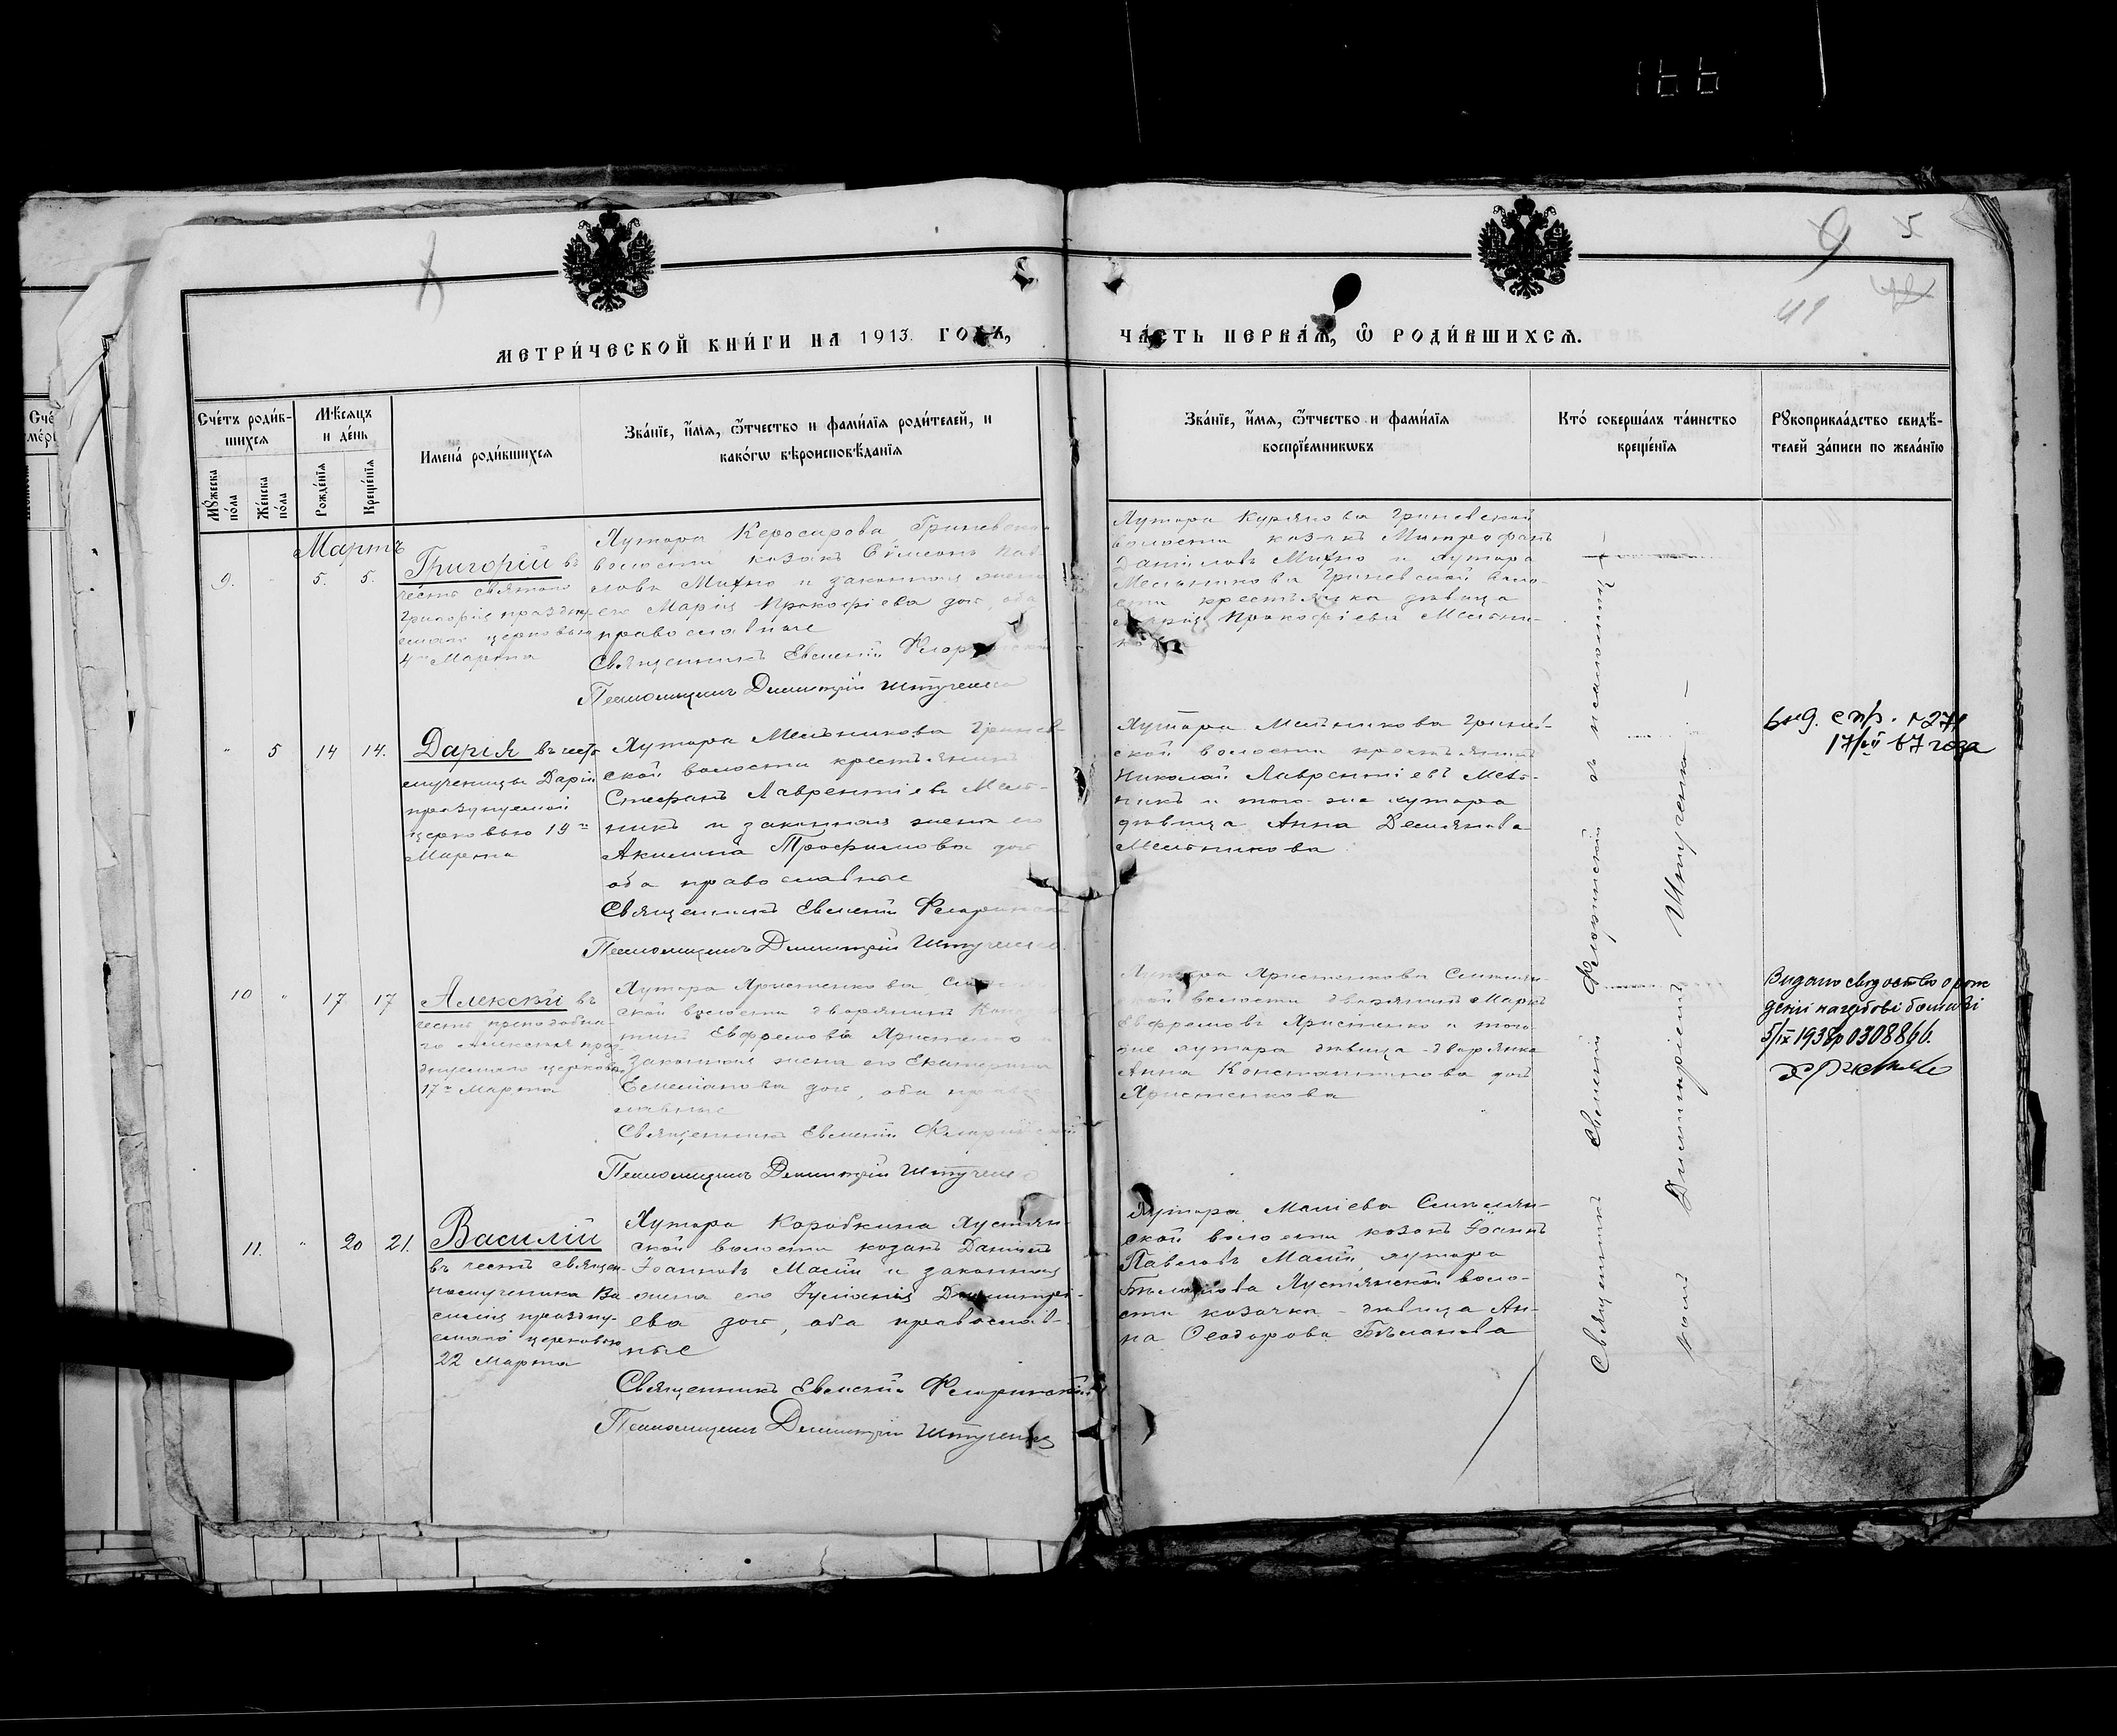 166
9 5
41 42
МЕТРИ́ЧЕСКОЙ КНИ́ГИ НА 1913. ГОДЪ,
ЧА́СТЬ ПЕРВА́Ѧ, Ѡ҆ РОДИ́ВШИХСѦ.
Сче́тъ роди́в-
шихсѧ
Мꙋ́жеска по́ла
Же́нска по́ла
Мѣ́сѧцъ
и де́нь
Рожде́нїѧ
Креще́нїѧ
Имена̀ роди́вшихсѧ
Зва́нїе, и҆́мѧ, ѻ҆́тчество и фами́лїѧ роди́телей, и
како́гѡ вѣроисповѣ́данїѧ
Зва́нїе, и҆́мѧ, ѻ҆́тчество и фами́лїѧ
воспрїе́мникѡвъ
Кто̀ соверша́лъ та́инство
креще́нїѧ
Рꙋкоприкла́дство свидѣ́-
телей за́писи по жела́нїю
Мартъ
9. " 5. 5.
Григорій въ
честь святого
Григорія праздну-
емаго церковью
4го Марта
Хутора Керосирова, Гриневской
волости козакъ Симеонъ Пав
ловъ Михно и законная жена
его Марія Прокофіева доч оба
православные
Священникъ Евменій
Псаломщикъ Димитрій Штученко
Хутора Курякова Гриневской
волости козакъ Митрофанъ
Даніиловъ Михно и хутора
Мельникова Гриневской воло-
сти крестьянка дѣвица
Марія Прокофіева Мельни-
кова
" 5 14 14.
Дарія въ честь
мученицы Даріи
празднуемой
церковью 19го
Марта
Хутора Мельникова Гринев-
ской волости крестьянинъ
Стефанъ Лаврентіевъ Мель-
никъ и законная жена его
Акилина Трофимова доч
оба православные
Священникъ Евменій
Псаломщикъ Димитрій Штученко
Хутора Мельникова Гринев-
ской волости крестьянинъ
Николай Лаврентіевъ Мель-
никъ и того-же хутора
дѣвица Анна Демянова
Мельникова
выд. спр. №271
67 года
10 " 17 17
Алексѣй въ
честь преподобна-
го Алексѣя праз-
днуемаго церковью
17го Марта
Хутора Христенкова
ской волости дворянинъ
Евфремовъ Христенко и
законная жена его Екатерина
Емеліанова доч, оба право
славные
Священникъ Евменій
Псаломщикъ Димитрій Штученко
Хутора Христенкова
ской волости дворянинъ Маркъ
Евфремовъ Христенко и того-
же хутора дѣвица-дворянка
Анна Константинова доч
Христенкова
Видано свидоство о рож
5/IX 1938р 0308866.
11. " 20 21.
Василій
въ честь священ-
номученика Ва
силія праздну-
емаго церковью
22 Марта
Хутора Коробкина Хустян-
ской волости козакъ Даніилъ
Іоанновъ Малій и законная
жена его Іуліанія Димитрі-
ева доч, оба православ-
ные
Священникъ Евменій
Псаломщикъ Димитрій Штученко
Хутора Маліева
ской волости козакъ Іоаннъ
Павловъ Малій, хутора
Бѣланова Хустянской воло-
сти козачка-дѣвица Ан-
на Ѳеодорова Бѣланова
Священникъ Евменій съ псаломщи-
комъ Димитріемъ Штученко